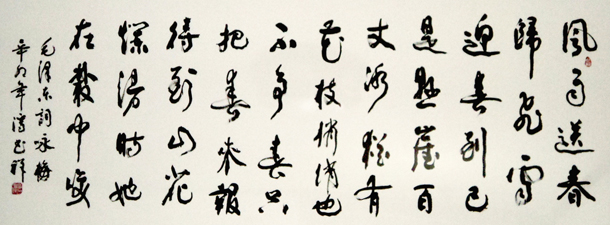 風雨送春
歸飛雪
迎春到已
是懸崖百
丈冰猶有
花枝俏俏也
不爭春只
把春來報
待到山花
爛漫時她
在叢中笑
毛澤東詞咏梅
辛卯年